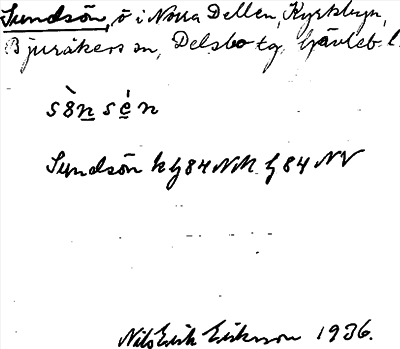 Sundsön, ö i Norra Dellen, Kyrkbyn,
Bjuråkers sn, Delsbo tg. Gävleb. l.
sòn sén
Sundsön k bg84NM. bg 84 NV
Nils Erik Eriksson 1936.